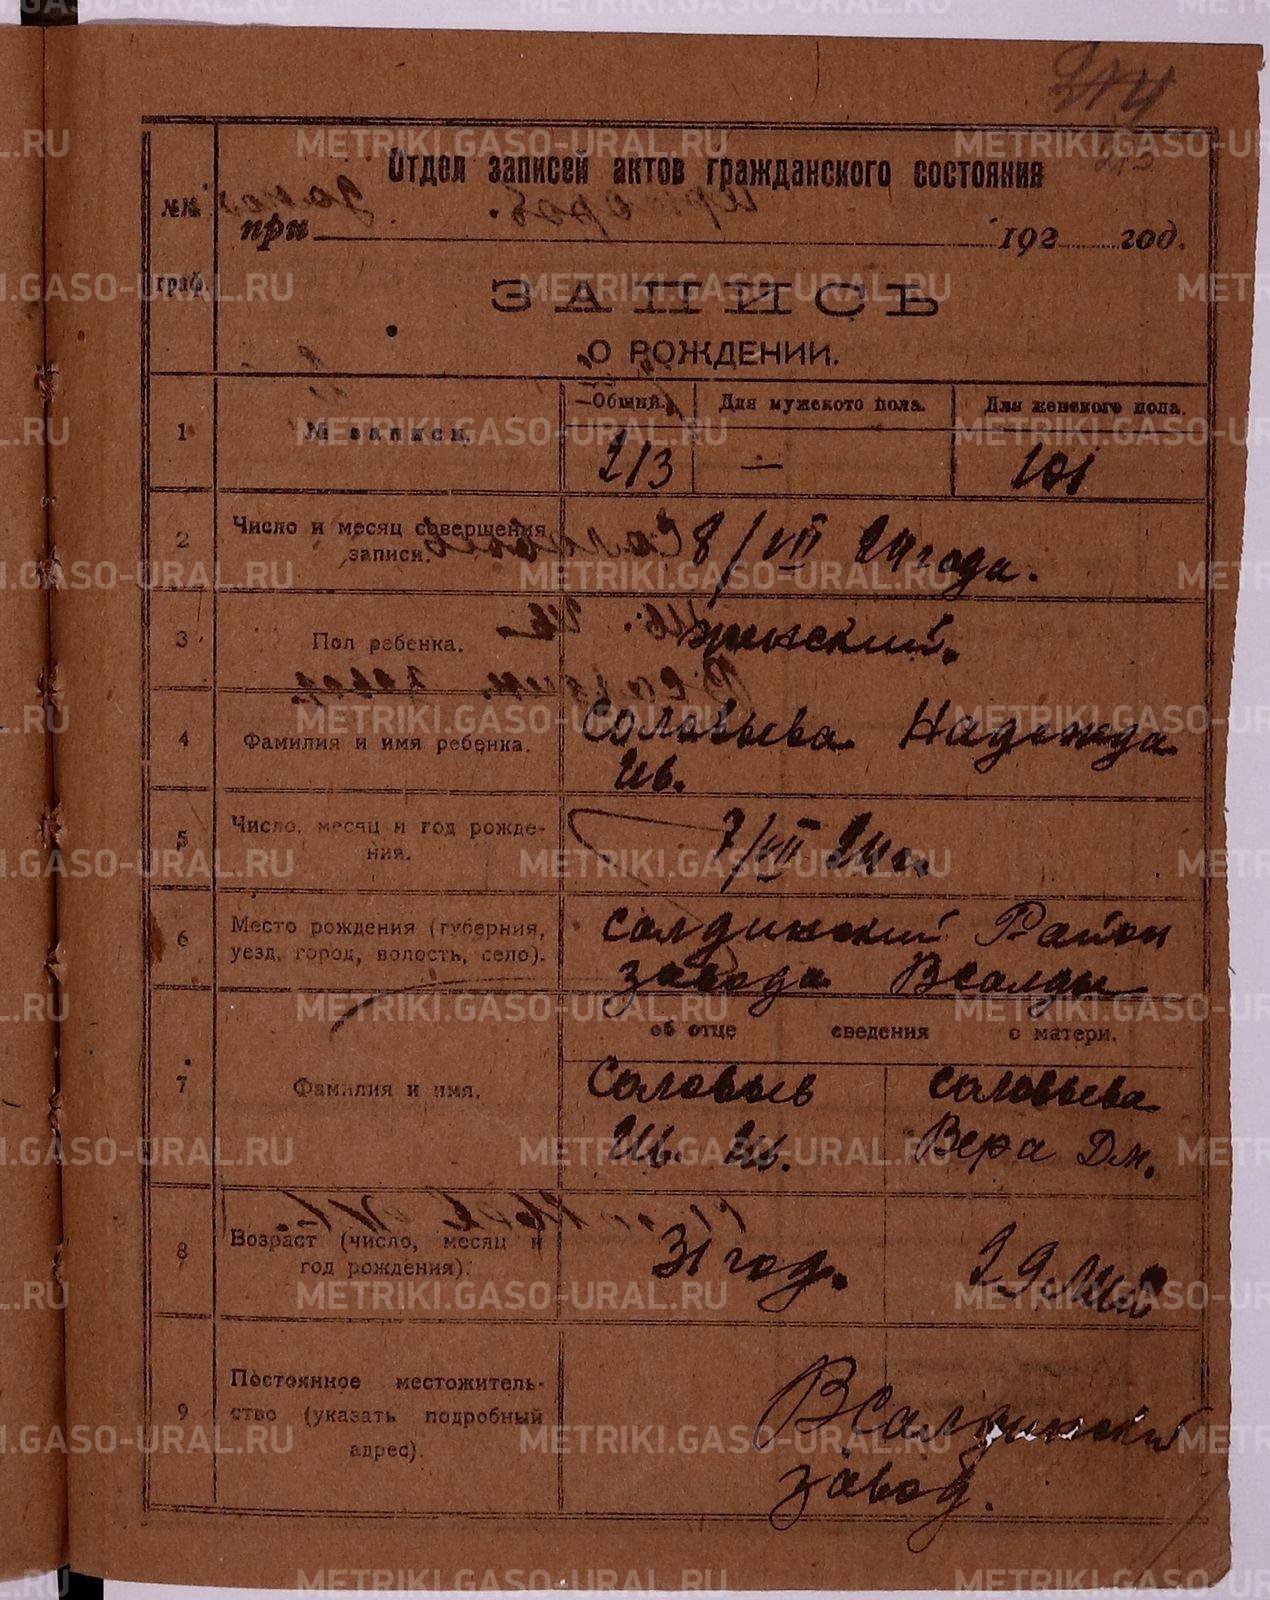 214
213
Отдел записей актов гражданского состояния
№№ граф.
при 192 год.
ЗАПИСЬ
О РОЖДЕНИИ.
1 № записи. Общий. Для мужского пола. Для женского пола.
213 — 101
2 Число и месяц совершения записи. 8/VII 24 года.
3 Пол ребенка. женский.
4 Фамилия и имя ребенка. Соловьева Надежда
Ив.
5 Число, месяц и год рождения. 7/VII 24 г.
6 Место рождения (губерния, уезд, город, волость, село). Салдинский Район
завода ВСалды
об отце сведения о матери.
7 Фамилия и имя. Соловьев Соловьева
Ив. Ив. Вера Дм.
8 Возраст (число, месяц и год рождения). 31 год. 29 лет
9 Постоянное местожительство (указать подробный адрес). ВСалдинский
завод.
METRIKI.GASO-URAL.RU